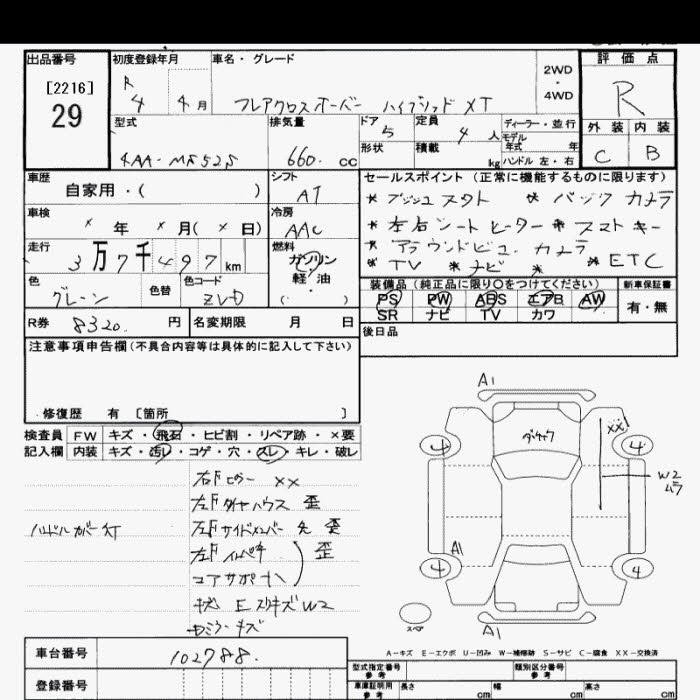 出品番号 初度登録年月 車名・グレード 2WD・4WD 評価点
[2216]
29
R 4 4月 フレアクロスオーバー ハイブリッド XT
R
型式 排気量 ドア 5 定員 4人 ディーラー・並行
モデル年式 年
外装 内装
4AA-MS52S 660. cc 形状 積載 kg ハンドル 左・右
C B
車歴 シフト セールスポイント(正常に機能するものに限ります)
自家用・( ) AT
* プッシュスタート * バックカメラ
車検 冷房
×年 ×月(×日) AAC
* 左右シートヒーター * スマートキー
走行 燃料
3万7千497km ガソリン
* アラウンドビューカメラ
軽・油
* TV * ナビ * * ETC
色 色替 色コード ( )
グレーン ZVD
装備品(純正品に限り○をつけてください) 新車保証書
PS PW ABS エアB AW 有・無
SR ナビ TV カワ
R券 8320. 円 名変期限 月 日
後日品
注意事項申告欄(不具合内容等は具体的に記入して下さい)
修復歴 有 〔箇所 〕
検査員 FW キズ・飛石・ヒビ割・リペア跡・×要
記入欄 内装 キズ・汚レ・コゲ・穴・スレ・キレ・破レ
右Fピラー ××
左Fタイヤハウス 歪
ハンドルカバー欠
左Fサイドメンバー先 歪
左Fインパネ 歪
コアサポート
E スリキズ W2
ミラーキズ
A1
ダイヤク
××
W2
ムラ
4 4
A1
4 4
スペア
A1
A-キズ E-エクボ U-凹み W-補修跡 S-サビ C-腐食 XX-交換済
車台番号 102788.
登録番号
型式指定番号 参考 類別区分番号 参考
車庫証明用 参考 長さ cm 幅 cm 高さ cm